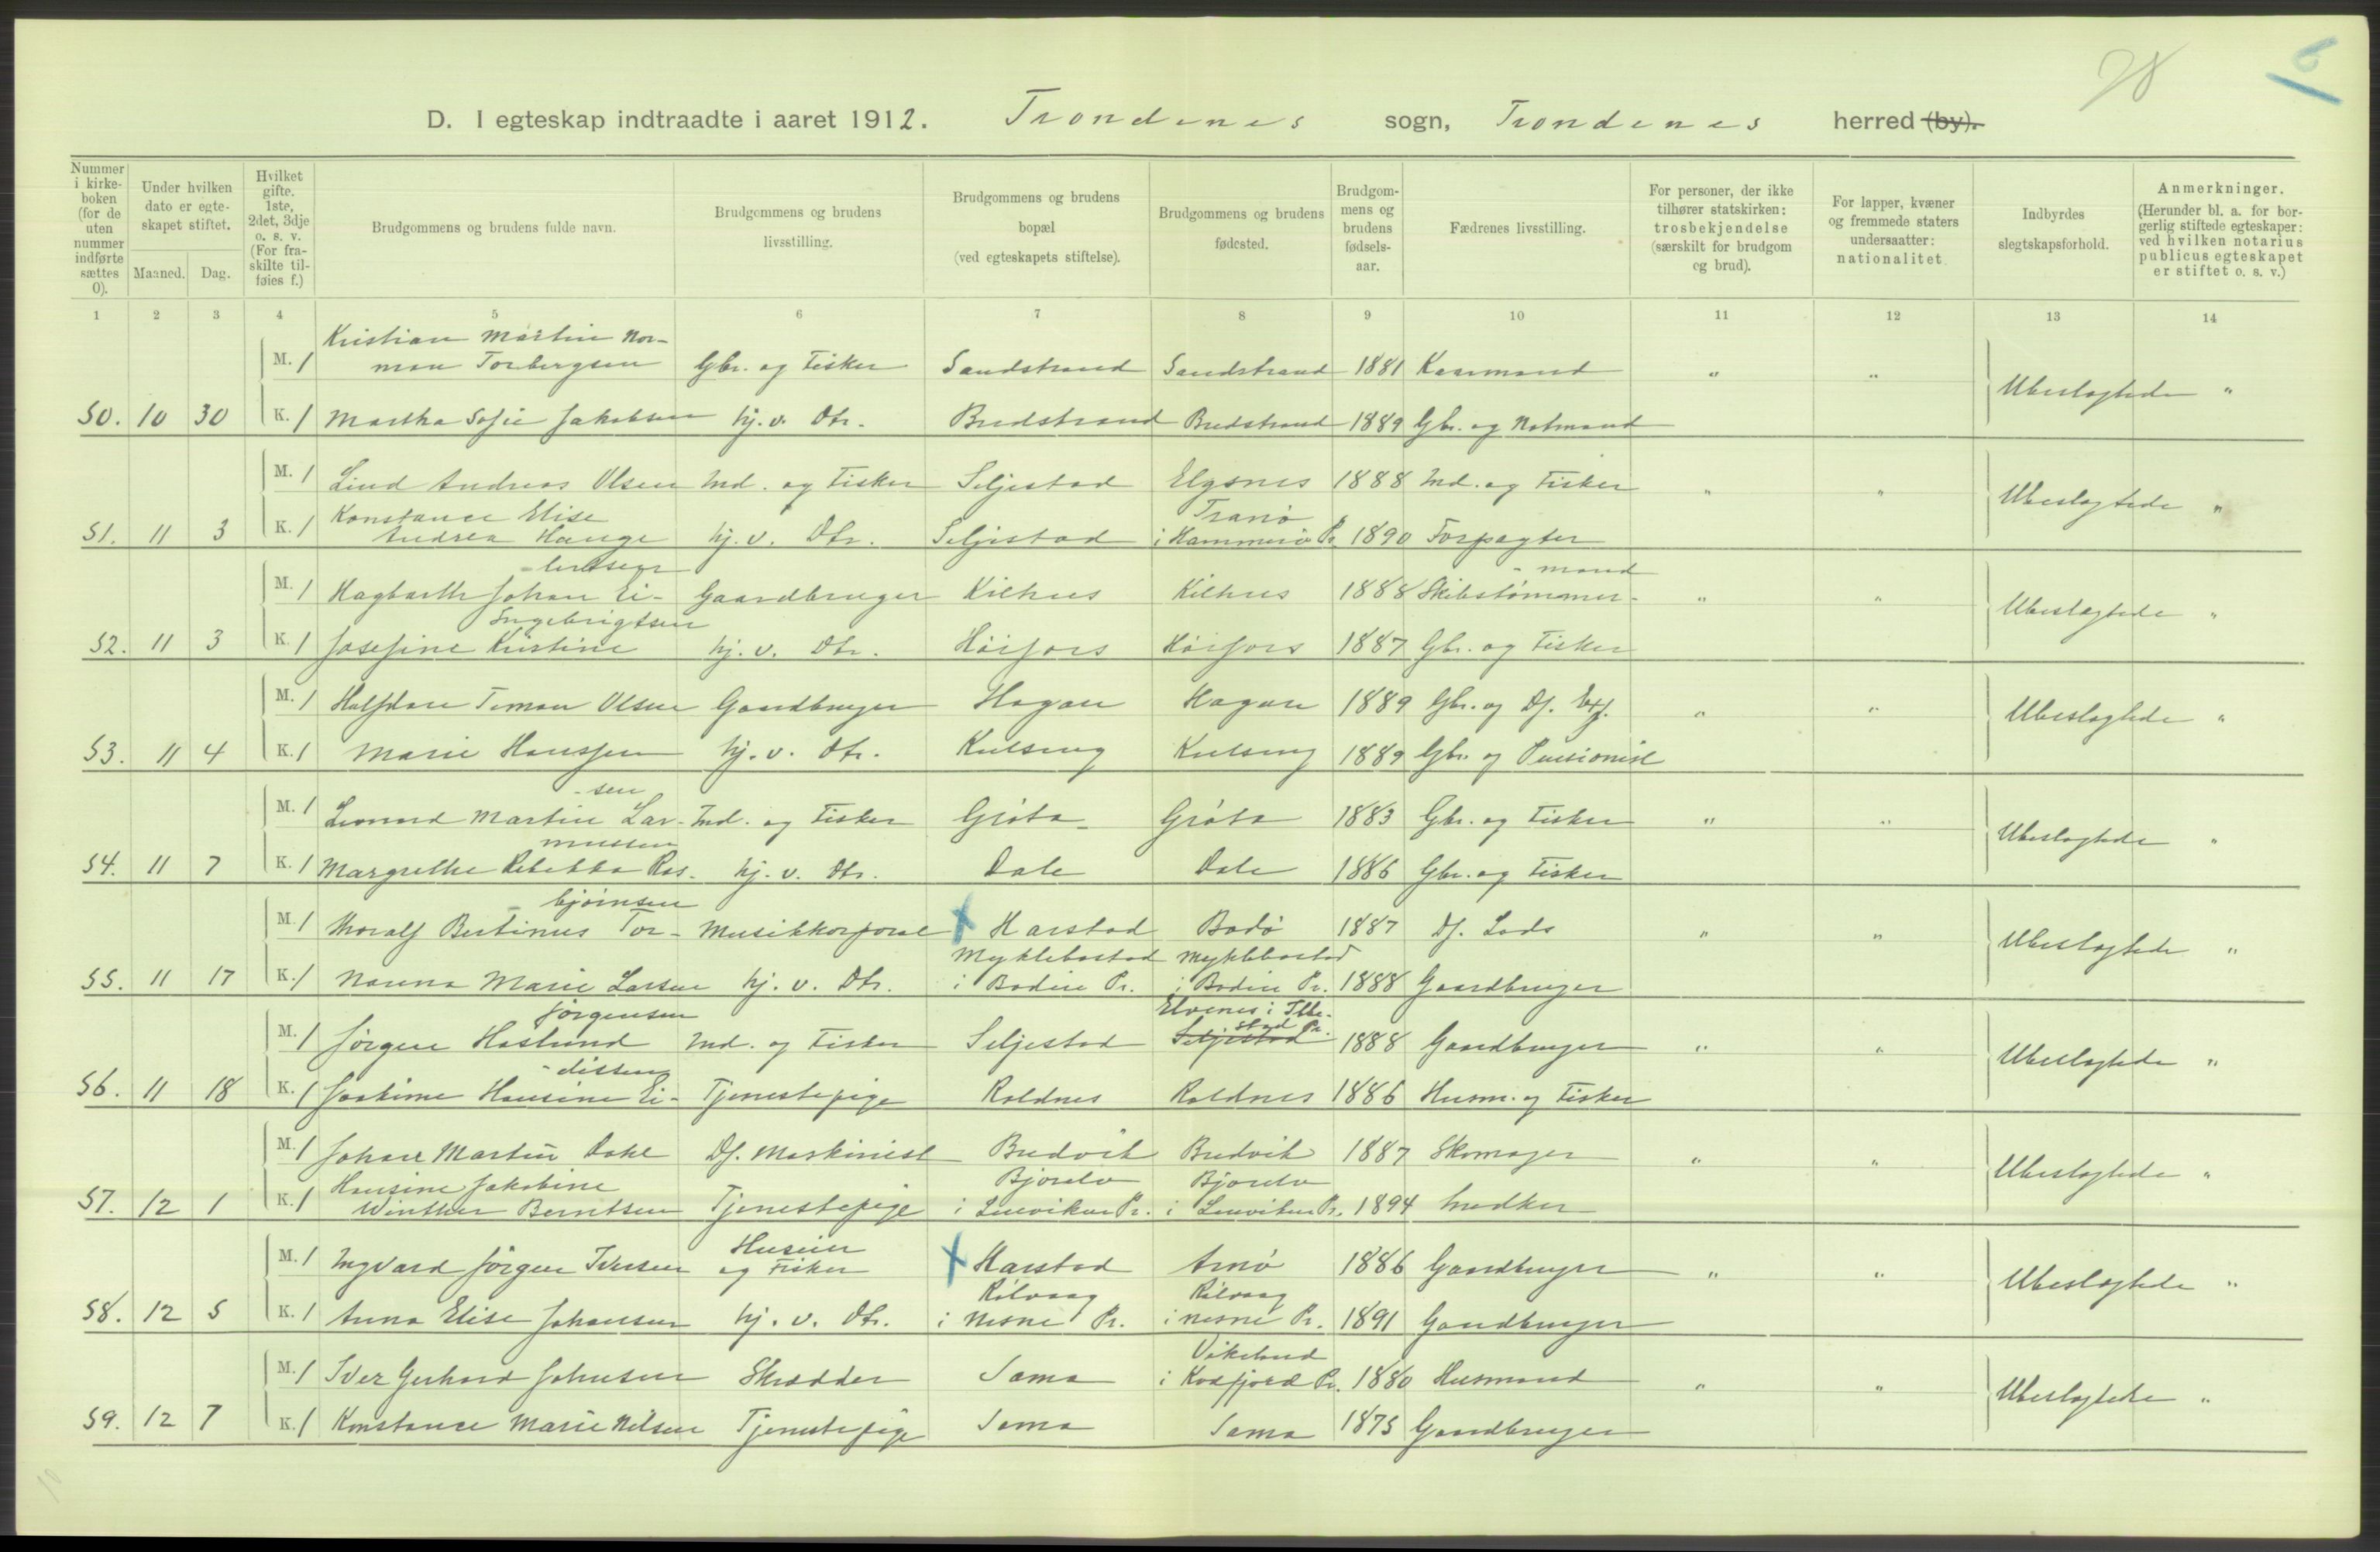 28 6
D. I egteskap indtraadte i aaret 1912. Trondenes sogn, Trondenes herred (by).
Nummer i kirkeboken (for de uten nummer indførte sættes 0). Under hvilken dato er egteskapet stiftet. Maaned. Dag. Hvilket gifte. 1ste, 2det, 3dje o. s. v. (For fraskilte tilføies f.) Brudgommens og brudens fulde navn. Brudgommens og brudens livsstilling. Brudgommens og brudens bopæl (ved egteskapets stiftelse). Brudgommens og brudens fødested. Brudgommens og brudens fødselsaar. Fædrenes livsstilling. For personer, der ikke tilhører statskirken: trosbekjendelse (særskilt for brudgom og brud). For lapper, kvæner og fremmede staters undersaatter: nationalitet Indbyrdes slegtskapsforhold. Anmerkninger. (Herunder bl. a. for borgerlig stiftede egteskaper: ved hvilken notarius publicus egteskapet er stiftet o. s. v.)
1 2 3 4 5 6 7 8 9 10 11 12 13 14
M. 1 Kristian Martin Norman Torbergsen Gbr. og Fisker Sandstrand Sandstrand 1881 Kaarmand " " Ubeslegtede "
50. 10 30 K. 1 Martha Sofie Jakobsen hj. v. Dtr. Bredstrand Bredstrand 1889 Gbr. og Notmand
M. 1 Lind Andreas Olsen Ind. og Fisker Seljestad Elgsnes 1888 Ind. og Fisker " " Ubeslegtede "
51. 11 3 K. 1 Konstance Elise Andrea Hauge hj. v. Dtr. Seljestad Tranø i Hammerø Pr. 1890 Forpagter
M. 1 Hagbarth Johan Ei-lertsen Gaardbruger Kilhus Kilhus 1888 Skibstømmer-mand " " Ubeslegtede "
52. 11 3 K. 1 Josefine Kristine Ingebrigtsen hj. v. Dtr. Høifors Høifors 1887 Gbr. og Fisker
M. 1 Halfdan Timan Olsen Gaardbruger Hagan Hagan 1889 Gbr. og Df. Exp. " " Ubeslegtede "
53. 11 4 K. 1 Marie Hanssen hj. v. Dtr. Kulseng Kulseng 1889 Gbr. og Pensionist
M. 1 Leonard Martin Lar-sen Ind. og Fisker Grøta Grøta 1883 Gbr. og Fisker " " Ubeslegtede "
54. 11 7 K. 1 Margrethe Rebekka Ras-mussen hj. v. Dtr. Dale Dale 1886 Gbr. og Fisker
M. 1 Thoralf Bertinus Tor-bjørnsen Musikkorporal X Harstad Bodø 1887 Df. Lods " " Ubeslegtede "
55. 11 17 K. 1 Nanna Marie Larsen hj. v. Dtr. Myklebostad i Bodin Pr. Myklebostad i Bodin Pr. 1888 Gaardbruger
M. 1 Jørgen Haslund Jørgensen Ind. og Fisker Seljestad Seljestad Elvenes i Ibbestad Pr. 1888 Gaardbruger " " Ubeslegtede "
56. 11 18 K. 1 Joakime Hansine Ei-dissen Tjenestepige Roldnes Roldnes 1886 Husm. og Fisker
M. 1 Johan Martin Dahl Df. Maskinist Bredvik Bredvik 1887 Skomager " " Ubeslegtede "
57. 12 1 K. 1 Hansine Jakobine Winther Berntsen Tjenestepige Bjorelv i Lenviken Pr. Bjorelv i Lenviken Pr. 1894 Snedker
M. 1 Ingvard Jørgen Iversen Huseier og Fisker X Harstad Arnø 1886 Gaardbruger " " Ubeslegtede "
58. 12 5 K. 1 Anna Elise Johansen hj. v. Dtr. Rølvaag i Nesne Pr. Rølvaag i Nesne Pr. 1891 Gaardbruger
M. 1 Iver Gerhard Johnsen Skrædder Sama Vikelund i Kvæfjord Pr. 1880 Husmand " " Ubeslegtede "
59. 12 7 K. 1 Konstance Marie Nilsen Tjenestepige Sama Sama 1875 Gaardbruger
10